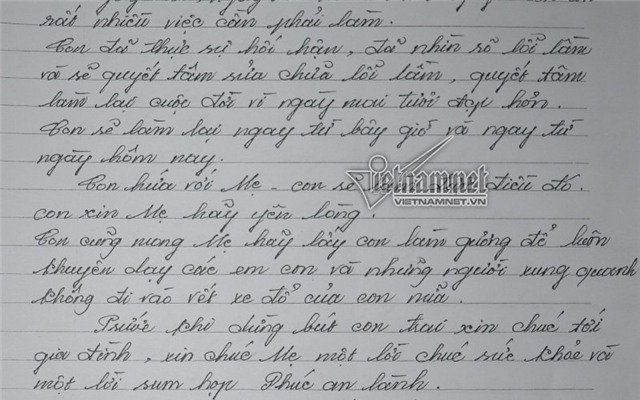 rất nhiều việc cần phải làm.
Con đã thực sự hối hận, đã nhìn rõ lỗi lầm
và sẽ quyết tâm sửa chữa lỗi lầm, quyết tâm
làm lại cuộc đời vì ngày mai tươi đẹp hơn.
Con sẽ làm lại ngay từ bây giờ và ngay từ
ngày hôm nay.
Con hứa với Mẹ - con sẽ làm điều đó.
con xin Mẹ hãy yên lòng.
Con cũng mong Mẹ hãy lấy con làm gương để luôn
khuyên dạy các em con và những người xung quanh
không đi vào vết xe đổ của con nữa.
Trước khi dừng bút con trai xin chúc tới
gia đình, xin chúc Mẹ một lời chúc sức khỏe và
một lời sum họp Phúc an lành.
Vietnamnet
VIETNAMNET.VN